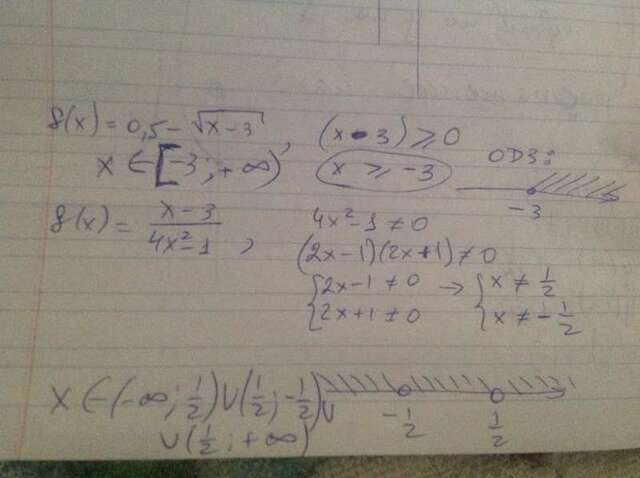 f(x) = 0,5 - √(x-3), (x-3) ⩾ 0
x ∈ [-3; +∞) x ⩾ -3 ОДЗ:
-3
f(x) = (x-3)/(4x²-1), 4x²-1 ≠ 0
(2x-1)(2x+1) ≠ 0
{2x-1 ≠ 0 → {x ≠ 1/2
{2x+1 ≠ 0 {x ≠ -1/2
x ∈ (-∞; 1/2) ∪ (1/2; -1/2) ∪
∪ (1/2; +∞) -1/2 1/2